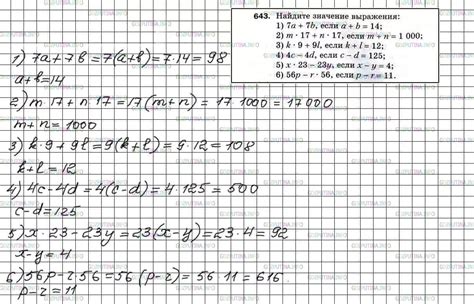 643. Найдите значение выражения:
1) 7a + 7b, если a + b = 14;
2) m · 17 + n · 17, если m + n = 1 000;
3) k · 9 + 9l, если k + l = 12;
4) 4c − 4d, если c − d = 125;
5) x · 23 − 23y, если x − y = 4;
6) 56p − r · 56, если p − r = 11.
1) 7a+7b=7(a+b)=7·14=98
a+b=14
2) m·17+n·17=17(m+n)=17·1000=17000
m+n=1000
3) k·9+9l=9(k+l)=9·12=108
k+l=12
4) 4c-4d=4(c-d)=4·125=500
c-d=125
5) x·23-23y=23(x-y)=23·4=92
x-y=4
6) 56p-r·56=56(p-r)=56·11=616
p-r=11